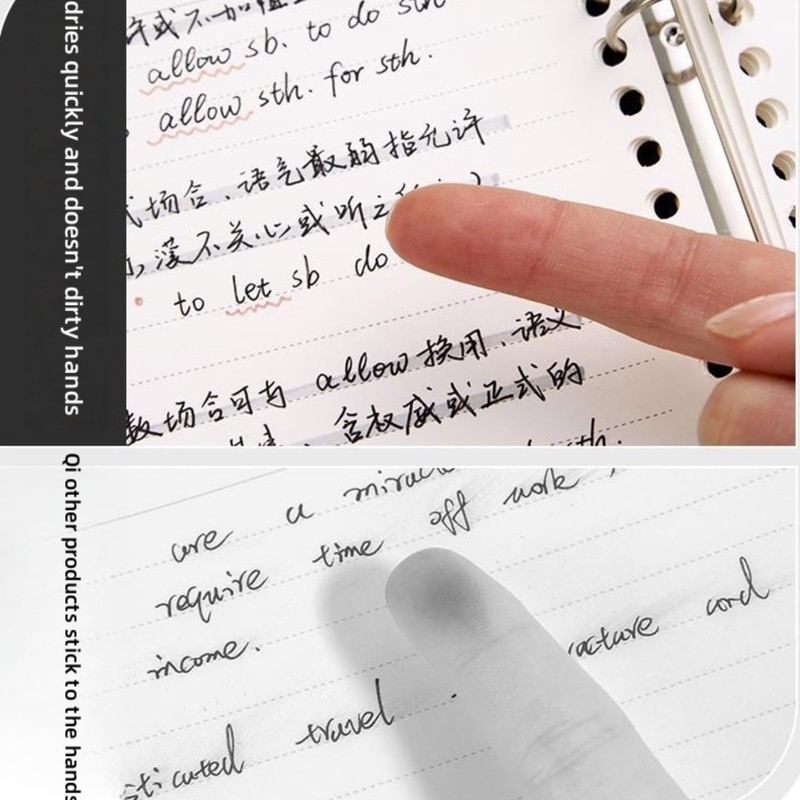 dries quickly and doesn't dirty hands
许或不加
allow sb. to do sth
allow sth. for sth.
式场合,语气最弱,指允许
漠不关心或听之
to let sb do
数场合可与 allow 换用,语义
含权威或正式的
sth.
Qi other products stick to the hands
are a miracle
require time off work
income.
cord
travel